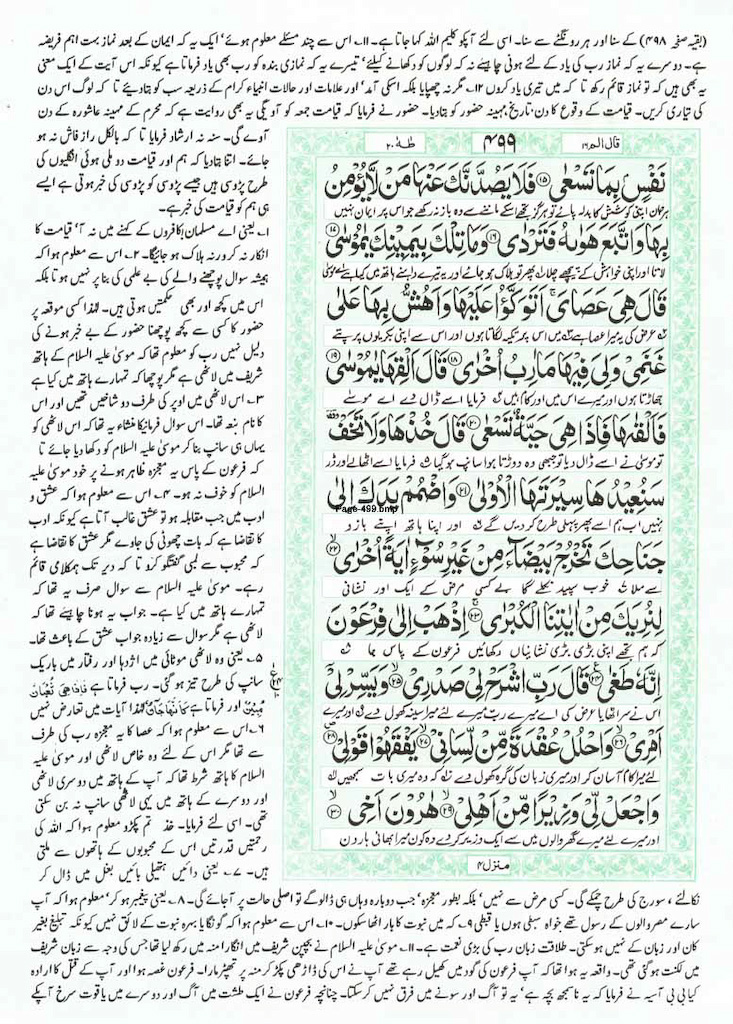 (بقیہ صفحہ ۴۹۸) کے سنا اور ہر رونگٹے سے سنا۔ اسی لئے آپکو کلیم اللہ کہا جاتا ہے۔ ۱۱۔ اس سے چند مسئلے معلوم ہوئے' ایک یہ کہ ایمان کے بعد نماز بہت اہم فریضہ
ہے۔ دوسرے یہ کہ نماز رب کی یاد کے لئے ہونی چاہیے نہ کہ لوگوں کو دکھانے کیلئے' تیسرے یہ کہ نمازی بندہ کو رب بھی یاد فرماتا ہے کیونکہ اس آیت کے ایک معنی
یہ بھی ہیں کہ تو نماز قائم رکھ تا کہ میں تیری یاد کروں ۱۲۔ مگر نہ چھپایا بلکہ اسکی آمد' اور علامات اور حالات انبیاء کرام کے ذریعہ سب کو بتا دیئے تا کہ لوگ اس دن
کی تیاری کریں۔ قیامت کے وقوع کا دن' تاریخ' مہینہ حضور کو بتا دیا۔ حضور نے فرمایا کہ قیامت جمعہ کو آوے گی یہ بھی روایت ہے کہ محرم کے مہینہ عاشورہ کے دن
آوے گی۔ سنہ نہ ارشاد فرمایا تا کہ بالکل راز فاش نہ ہو
جائے۔ اتنا بتا دیا کہ ہم اور قیامت دو ملی ہوئی انگلیوں کی
طرح پڑوسی ہیں جیسے پڑوسی کو پڑوسی کی خبر ہوتی ہے ایسے
ہی ہم کو قیامت کی خبر ہے۔
۱۔ یعنی اے مسلمان! کافروں کے کہنے میں نہ آ' قیامت کا
انکار نہ کر ورنہ ہلاک ہو جائیگا۔ ۲۔ اس سے معلوم ہوا کہ
ہمیشہ سوال پوچھنے والے کی بے علمی کی بنا پر نہیں ہوتا بلکہ
اس میں کچھ اور بھی حکمتیں ہوتی ہیں۔ لہذا کسی موقعہ پر
حضور کا کسی سے کچھ پوچھنا حضور کے بے خبر ہونے کی
دلیل نہیں رب کو معلوم تھا کہ موسیٰ علیہ السلام کے ہاتھ
شریف میں لاٹھی ہے مگر پوچھا کہ تمہارے ہاتھ میں کیا ہے
۳۔ اس لاٹھی میں اوپر کی طرف دو شاخیں تھیں اور اس
کا نام تھا۔ اس سوال فرمانیکا منشاء یہ تھا کہ اس لاٹھی کو
یہاں ہی سانپ بنا کر موسیٰ علیہ السلام کو دکھا دیا جائے تا
کہ فرعون کے پاس یہ معجزہ ظاہر ہونے پر خود موسیٰ علیہ
السلام کو خوف نہ ہو۔ ۴۔ اس سے معلوم ہوا کہ عشق و
ادب میں جب مقابلہ ہو تو عشق غالب آتا ہے کیونکہ ادب
کا تقاضا ہے کہ بات چھوٹی کی جاوے مگر عشق کا تقاضا ہے
کہ محبوب سے لمبی گفتگو کرو تا کہ دیر تک ہمکلامی قائم
رہے۔ موسیٰ علیہ السلام سے سوال صرف یہ تھا کہ
تمہارے ہاتھ میں کیا ہے۔ جواب یہ ہونا چاہیئے تھا کہ
لاٹھی ہے مگر سوال سے زیادہ جواب عشق کے باعث تھا۔
۵۔ یعنی وہ لاٹھی موٹائی میں اژدہا اور رفتار میں باریک
سانپ کی طرح تیز ہو گئی۔ رب فرماتا ہے فَاِذَا هِىَ ثُعْبَانٌ
مُّبِيْنٌ اور فرماتا ہے كَاَنَّهَا جَآنٌّ لہذا آیات میں تعارض نہیں
۶۔ اس سے معلوم ہوا کہ عصا کا یہ معجزہ رب کی طرف
سے تھا مگر اس کے لئے وہ خاص لاٹھی اور موسیٰ علیہ
السلام کا ہاتھ شرط تھا کہ آپ کے ہاتھ میں دوسری لاٹھی
اور دوسرے کے ہاتھ میں یہی لاٹھی سانپ نہ بن سکتی
تھی۔ اسی لئے فرمایا۔ خذ تم پکڑو معلوم ہوا کہ اللہ کی
رحمتیں قدرتیں اس کے محبوبوں کے ہاتھوں سے ملتی
ہیں۔ ۷۔ یعنی دائیں ہتھیلی بائیں بغل میں ڈال کر
قال الم ۱۶
۴۹۹
طٰهٰ ۲۰
نَفْسٍۭ بِمَا تَسْعٰى ۱۵ فَلَا يَصُدَّنَّكَ عَنْهَا مَنْ لَّا يُؤْمِنُ
ہر جان اپنی کوشش کا بدلہ پائے تو ہرگز تجھے اسکے ماننے سے وہ باز نہ رکھے جو اس پر ایمان نہیں
بِهَا وَاتَّبَعَ هَوٰىهُ فَتَرْدٰى ۱۶ وَمَا تِلْكَ بِيَمِيْنِكَ يٰمُوْسٰى ۱۷
لاتا اور اپنی خواہش کے پیچھے چلا پھر تو ہلاک ہو جائے اور یہ تیرے داہنے ہاتھ میں کیا ہے اے موسیٰ
قَالَ هِىَ عَصَاىَ ۚ اَتَوَكَّؤُا عَلَيْهَا وَاَهُشُّ بِهَا عَلٰى
عرض کی یہ میرا عصا ہے میں اس پر تکیہ لگاتا ہوں اور اس سے اپنی بکریوں پر پتے
غَنَمِىْ وَلِىَ فِيْهَا مَاٰرِبُ اُخْرٰى ۱۸ قَالَ اَلْقِهَا يٰمُوْسٰى ۱۹
جھاڑتا ہوں اور میرے اس میں اور کام ہیں فرمایا اسے ڈال دے اے موسیٰ
فَاَلْقٰىهَا فَاِذَا هِىَ حَيَّةٌ تَسْعٰى ۲۰ قَالَ خُذْهَا وَلَا تَخَفْ
تو موسیٰ نے اسے ڈال دیا تو جبھی وہ دوڑتا ہوا سانپ ہو گیا فرمایا اسے اٹھا لے اور ڈر
سَنُعِيْدُهَا سِيْرَتَهَا الْاُوْلٰى ۲۱ وَاضْمُمْ يَدَكَ اِلٰى
Page-499.bmp
نہیں اب ہم اسے پھر پہلی طرح کر دیں گے اور اپنا ہاتھ اپنے بازو
جَنَاحِكَ تَخْرُجْ بَيْضَآءَ مِنْ غَيْرِ سُوْٓءٍ اٰيَةً اُخْرٰى ۲۲
سے ملا خوب سپید نکلے گا بے کسی مرض کے ایک اور نشانی
لِنُرِيَكَ مِنْ اٰيٰتِنَا الْكُبْرٰى ۲۳ اِذْهَبْ اِلٰى فِرْعَوْنَ
کہ ہم تجھے اپنی بڑی بڑی نشانیاں دکھائیں فرعون کے پاس جا
اِنَّهٗ طَغٰى ۲۴ قَالَ رَبِّ اشْرَحْ لِىْ صَدْرِىْ ۲۵ وَيَسِّرْ لِىْٓ
اس نے سر اٹھایا عرض کی اے میرے رب میرے لئے میرا سینہ کھول دے اور میرے
اَمْرِىْ ۲۶ وَاحْلُلْ عُقْدَةً مِّنْ لِّسَانِىْ ۲۷ يَفْقَهُوْا قَوْلِىْ ۲۸
لئے میرا کام آسان کر اور میری زبان کی گرہ کھول دے کہ وہ میری بات سمجھیں
وَاجْعَلْ لِّىْ وَزِيْرًا مِّنْ اَهْلِىْ ۲۹ هٰرُوْنَ اَخِى ۳۰
اور میرے لئے میرے گھر والوں میں سے ایک وزیر کر دے وہ کون میرا بھائی ہارون
منزل ۴
نکالئے، سورج کی طرح چمکے گی۔ کسی مرض سے نہیں' بلکہ بطور معجزہ' جب دوبارہ وہاں ہی ڈالو گے تو اصلی حالت پر آ جائے گی۔ ۸۔ یعنی پیغمبر ہو کر' معلوم ہوا کہ آپ
سارے مصر والوں کے رسول تھے خواہ سبطی ہوں یا قبطی ۹۔ کہ میں نبوت کا بار اٹھا سکوں۔ ۱۰۔ اس سے معلوم ہوا کہ گونگا یا بہرہ نبوت کے لائق نہیں کیونکہ تبلیغ بغیر
کان اور زبان کے نہیں ہو سکتی۔ طلاقت زبان رب کی بڑی نعمت ہے۔ ۱۱۔ موسیٰ علیہ السلام نے بچپن شریف میں انگارا منہ میں رکھ لیا تھا جس کی وجہ سے زبان شریف
میں لکنت ہو گئی تھی۔ واقعہ یہ ہوا تھا کہ آپ فرعون کی گود میں کھیل رہے تھے آپ نے اس کی ڈاڑھی پکڑ کر منہ پر تھپڑ مارا۔ فرعون غصہ ہوا اور آپ کے قتل کا ارادہ
کیا بی بی آسیہ نے فرمایا کہ یہ نا سمجھ بچہ ہے' یہ تو آگ اور سونے میں فرق نہیں کر سکتا۔ چنانچہ فرعون نے ایک طشت میں آگ اور دوسرے میں یاقوت سرخ آپکے